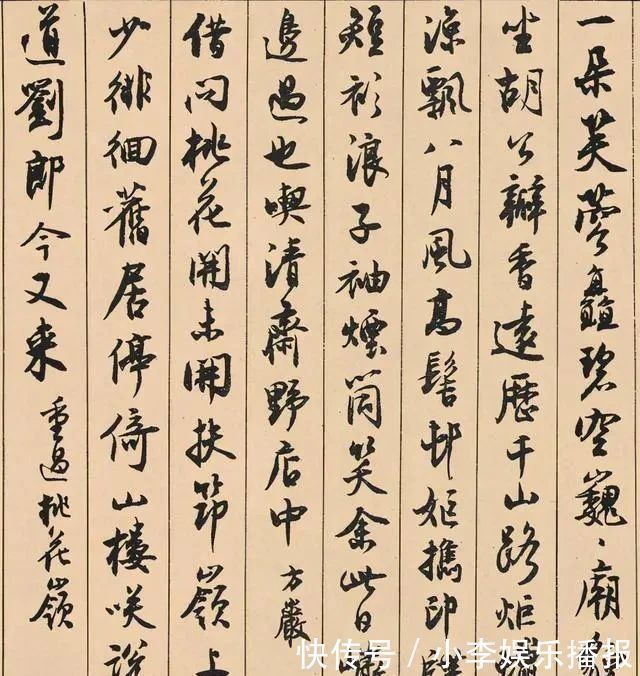 一朵芙蓉矗碧空巍〻廟
坐胡公瓣香遠歷千山路炬
涼飄八月風高髻邨姬攜印
短衫浪子袖煙筒笑余此日
邊過也喫清齋野店中 方巖
借問桃花開未開扶筇嶺上
少徘徊舊居停倚山樓咲説
道劉郎今又来 重過桃花嶺
快传号 / 小李娱乐播报